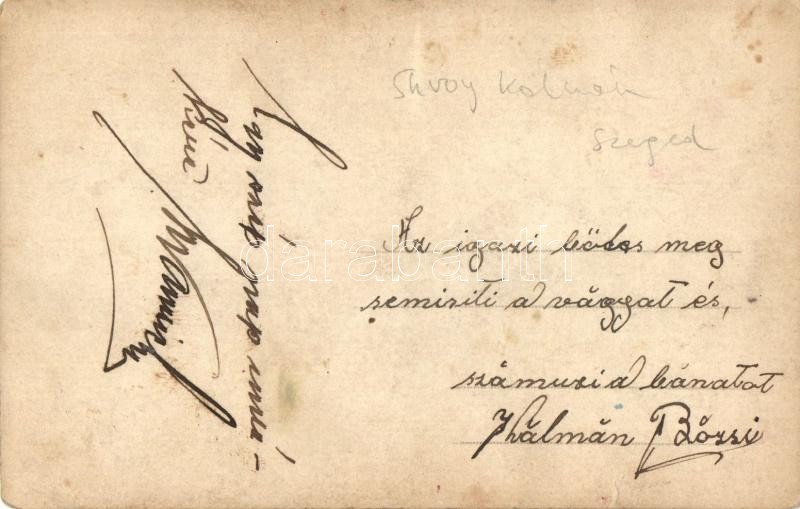 Shvoy Kálmán
Szeged
Az igazi bölcs meg
semisiti a vággyat és,
száműzi a bánatot
Kálmán Bözsi
Egy szép nap
darabanth